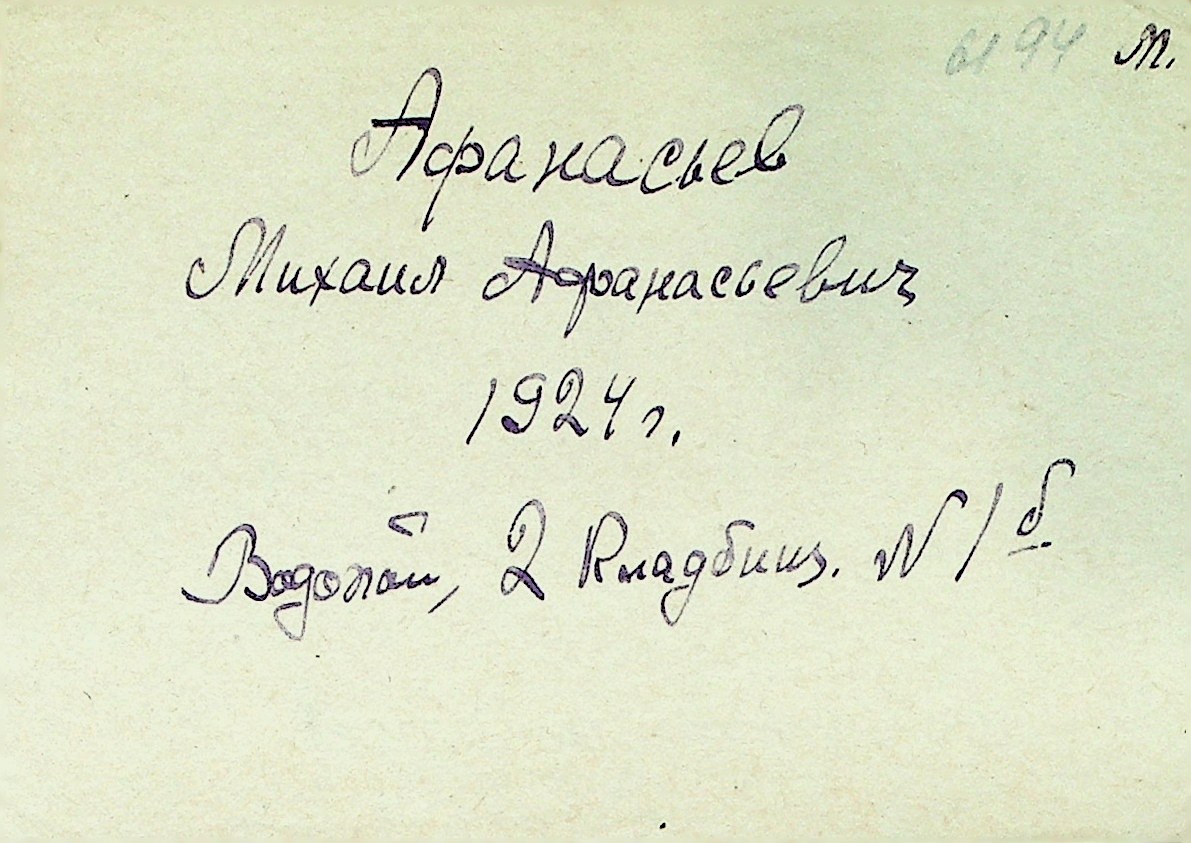 6194 м.
Афанасьев
Михаил Афанасьевич
1924 г.
Водопой, 2 Кладбищ. N 1 б